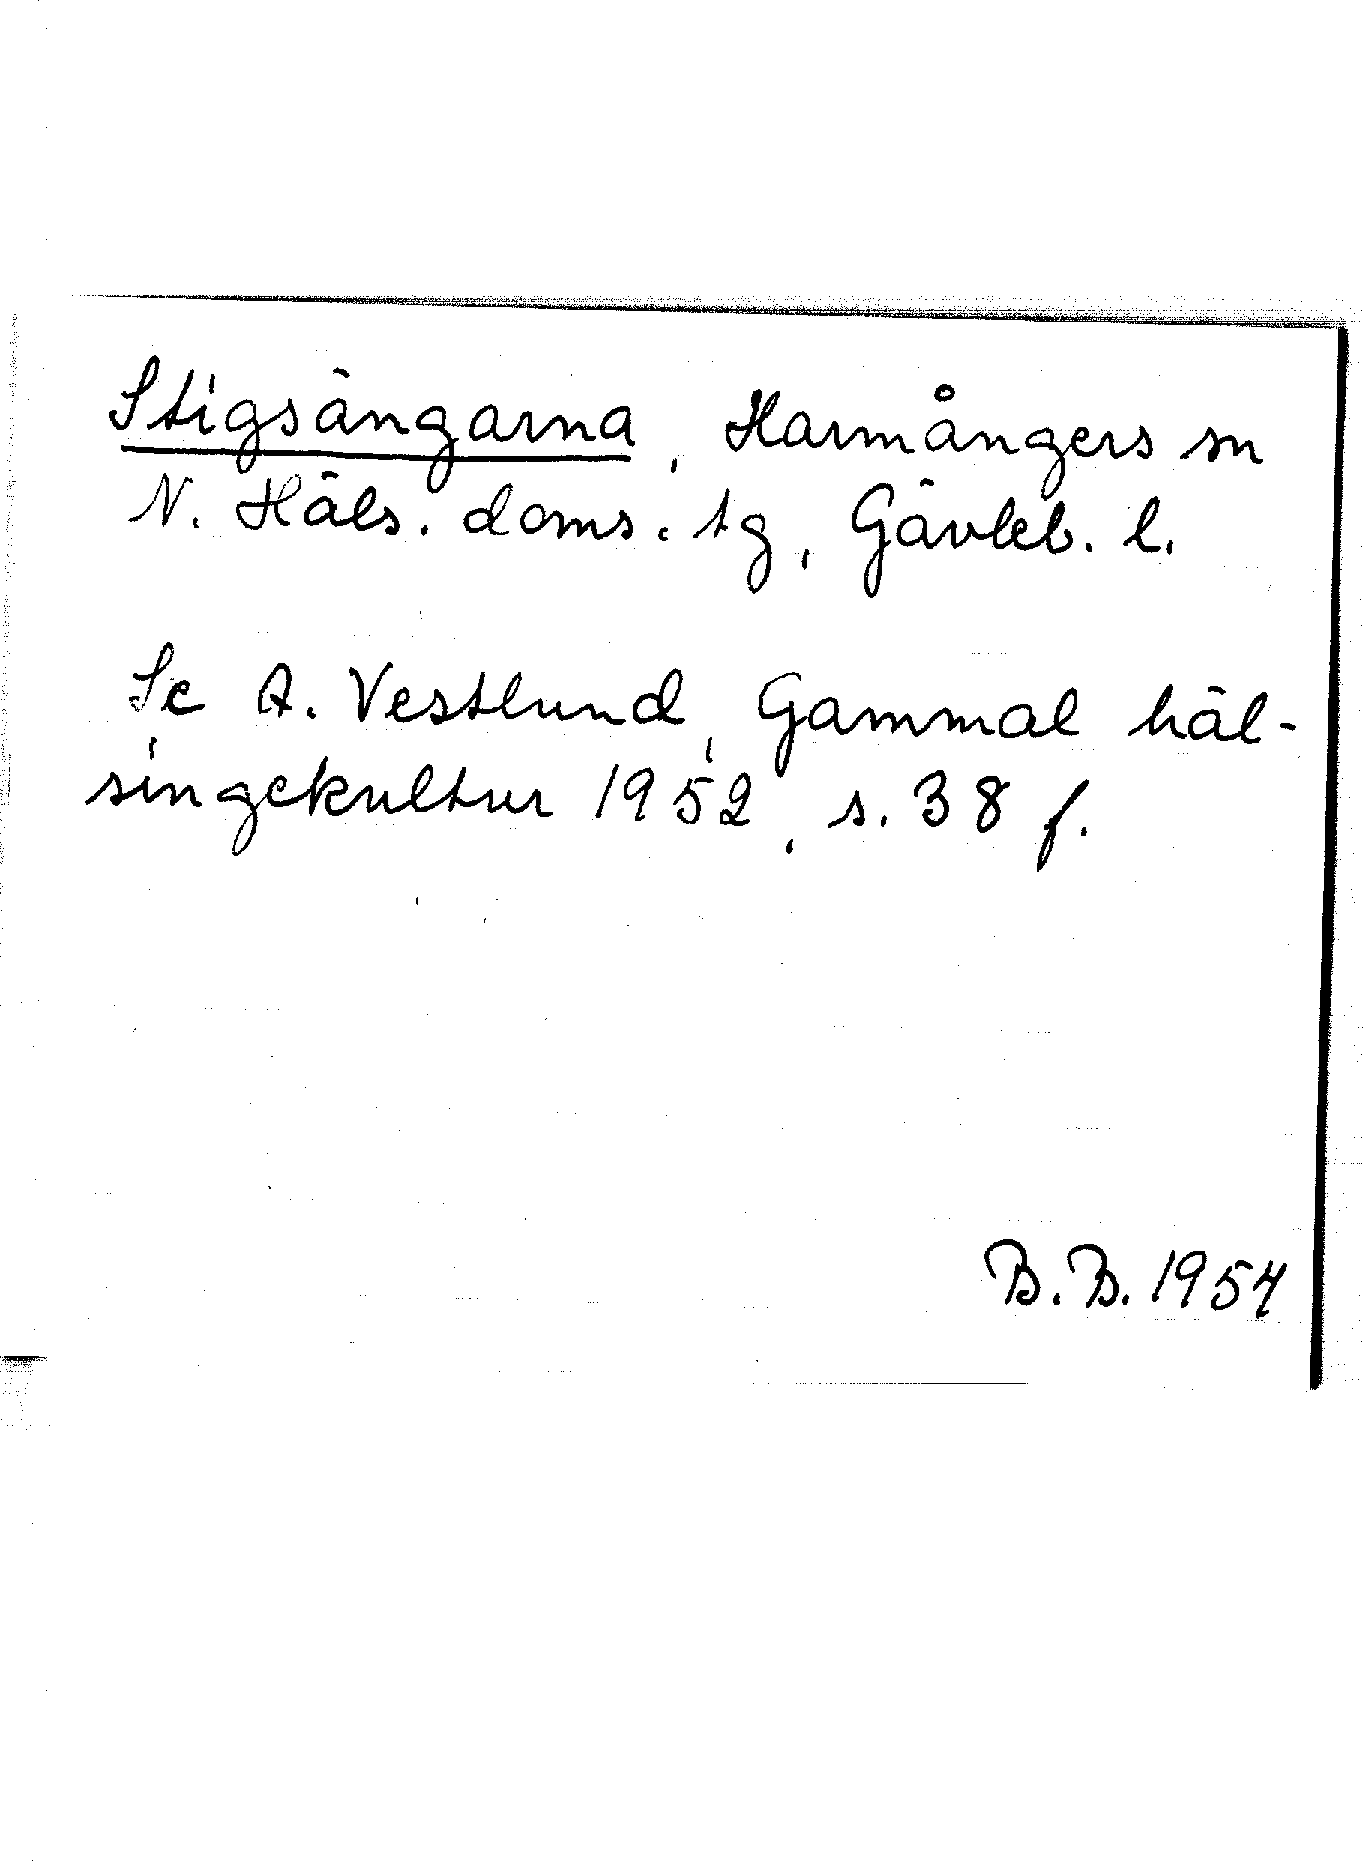 Stigsängarna, Harmångers sn
N. Häls. doms. tg, Gävleb. l.
Se A. Vestlund, Gammal häl-
singekultur 1952, s. 38 f.
B.B. 1954